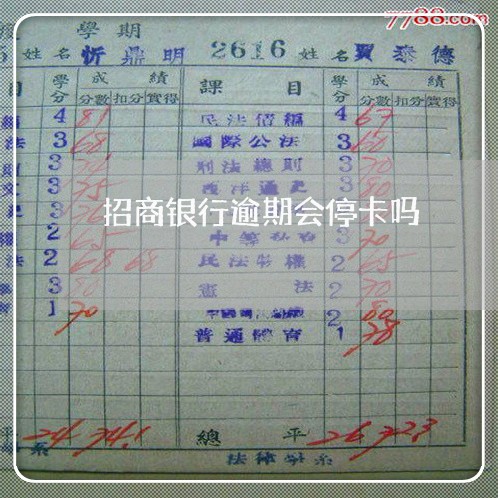 7788.com
學期
姓名忻鼎明 2616 姓名賈泰德
目 學分 成績 課目 學分 成績
分數 扣分 實得 分數 扣分 實得
4 81 民法債編 4 67
法 3 68 國際公法 3 60
3 刑法總則 3 70
文 3 75 西洋通史 3 80
3
招商银行逾期会停卡吗
權 2 65 3 70
法 2 68 68 民法物權 2 65
3 80 憲法 2 70
1 70 2 80
普通體育 1 78
平 24 74.1 總平 26 72.3
系 法律學系